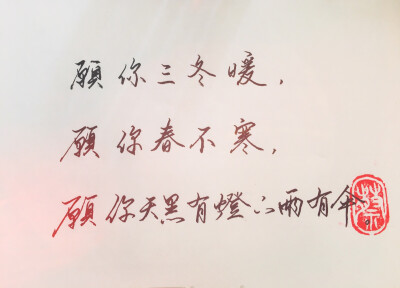 願你三冬暖，
願你春不寒，
願你天黑有燈下雨有傘。